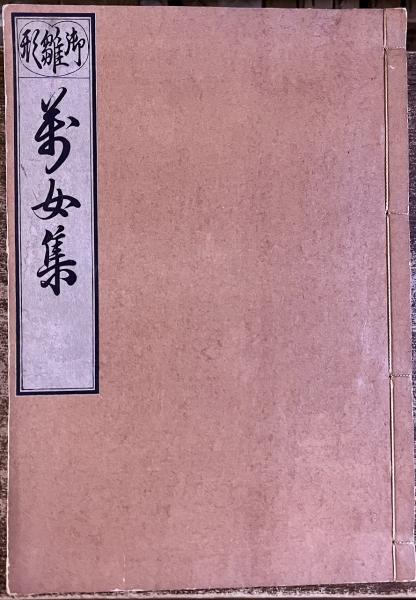 御雛形
萬女集